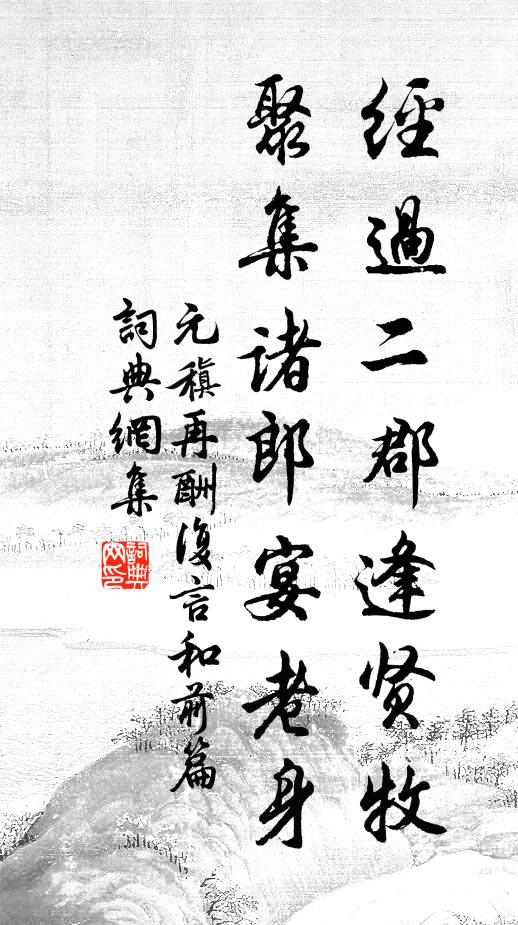 經過二郡逢贤牧
聚集诸郎宴老身
元稹再酬復言和前篇
詞典網集
詞典
网印